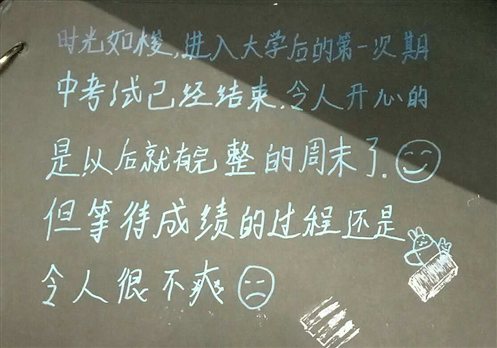 时光如梭,进入大学后的第一次期
中考试已经结束,令人开心的
是以后就有完整的周末了.
但等待成绩的过程还是
令人很不爽